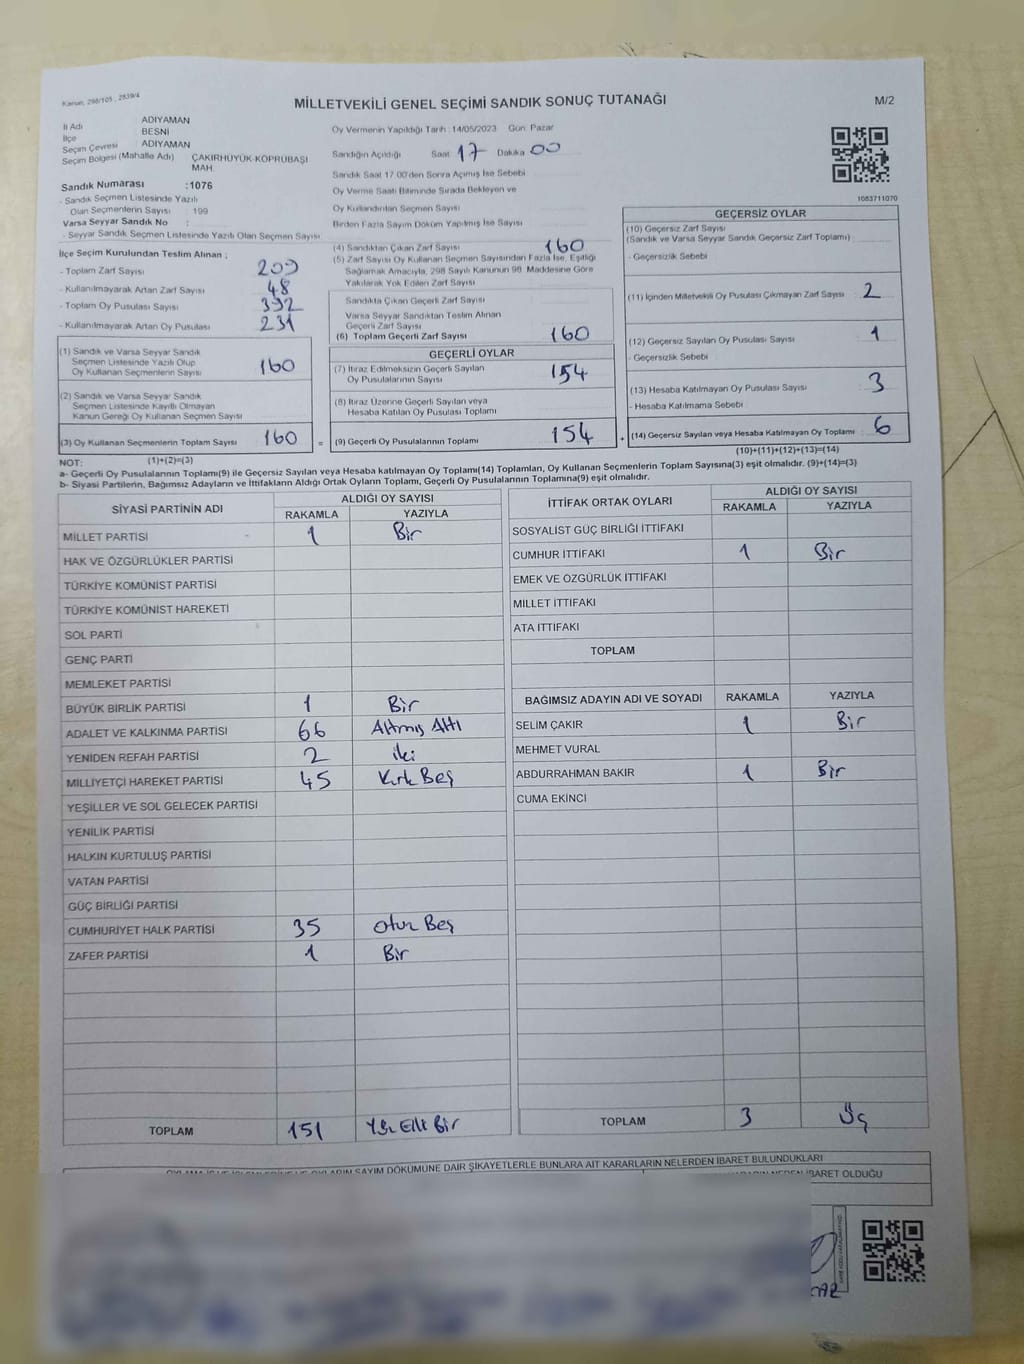 Kanun, 298/105 , 2839/4
MİLLETVEKİLİ GENEL SEÇİMİ SANDIK SONUÇ TUTANAĞI
M/2
İl Adı ADIYAMAN
İlçe BESNİ
Seçim Çevresi ADIYAMAN
Seçim Bölgesi (Mahalle Adı) ÇAKIRHÜYÜK-KÖPRÜBAŞI MAH
Sandık Numarası :1076
- Sandık Seçmen Listesinde Yazılı
Olan Seçmenlerin Sayısı : 199
Varsa Seyyar Sandık No :
- Seyyar Sandık Seçmen Listesinde Yazılı Olan Seçmen Sayısı
Oy Vermenin Yapıldığı Tarih :14/05/2023 Gün: Pazar
Sandığın Açıldığı Saat 17 Dakika 00
Sandık Saat 17.00'den Sonra Açımış İse Sebebi
Oy Verme Saati Bitiminde Sırada Bekleyen ve
Oy Kullandırılan Seçmen Sayısı
Birden Fazla Sayım Döküm Yapılmış İse Sayısı
1083711070
İlçe Seçim Kurulundan Teslim Alınan ;
- Toplam Zarf Sayısı 209
- Kullanılmayarak Artan Zarf Sayısı 48
- Toplam Oy Pusulası Sayısı 392
- Kullanılmayarak Artan Oy Pusulası 231
(1) Sandık ve Varsa Seyyar Sandık
Seçmen Listesinde Yazılı Olup
Oy Kullanan Seçmenlerin Sayısı 160
(2) Sandık ve Varsa Seyyar Sandık
Seçmen Listesinde Kayıtlı Olmayan
Kanun Gereği Oy Kullanan Seçmen Sayısı
(3) Oy Kullanan Seçmenlerin Toplam Sayısı 160
(1)+(2)=(3)
(4) Sandıktan Çıkan Zarf Sayısı 160
(5) Zarf Sayısı Oy Kullanan Seçmen Sayısından Fazla İse, Eşitliği
Sağlamak Amacıyla, 298 Sayılı Kanunun 98. Maddesine Göre
Yakılarak Yok Edilen Zarf Sayısı
Sandıkta Çıkan Geçerli Zarf Sayısı
Varsa Seyyar Sandıktan Teslim Alınan
Geçerli Zarf Sayısı
(6) Toplam Geçerli Zarf Sayısı 160
GEÇERLİ OYLAR
(7) İtiraz Edilmeksizin Geçerli Sayılan
Oy Pusulalarının Sayısı 154
(8) İtiraz Üzerine Geçerli Sayılan veya
Hesaba Katılan Oy Pusulası Toplamı
= (9) Geçerli Oy Pusulalarının Toplamı 154
GEÇERSİZ OYLAR
(10) Geçersiz Zarf Sayısı
(Sandık ve Varsa Seyyar Sandık Geçersiz Zarf Toplamı)
- Geçersizlik Sebebi
(11) İçinden Milletvekili Oy Pusulası Çıkmayan Zarf Sayısı 2
(12) Geçersiz Sayılan Oy Pusulası Sayısı 1
- Geçersizlik Sebebi
(13) Hesaba Katılmayan Oy Pusulası Sayısı 3
- Hesaba Katılmama Sebebi
+ (14) Geçersiz Sayılan veya Hesaba Katılmayan Oy Toplamı 6
(10)+(11)+(12)+(13)=(14)
NOT:
a- Geçerli Oy Pusulalarının Toplamı(9) ile Geçersiz Sayılan veya Hesaba katılmayan Oy Toplamı(14) Toplamları, Oy Kullanan Seçmenlerin Toplam Sayısına(3) eşit olmalıdır. (9)+(14)=(3)
b- Siyasi Partilerin, Bağımsız Adayların ve İttifakların Aldığı Ortak Oyların Toplamı, Geçerli Oy Pusulalarının Toplamına(9) eşit olmalıdır.
SİYASİ PARTİNİN ADI ALDIĞI OY SAYISI
RAKAMLA YAZIYLA
MİLLET PARTİSİ 1 Bir
HAK VE ÖZGÜRLÜKLER PARTİSİ
TÜRKİYE KOMÜNİST PARTİSİ
TÜRKİYE KOMÜNİST HAREKETİ
SOL PARTİ
GENÇ PARTİ
MEMLEKET PARTİSİ
BÜYÜK BİRLİK PARTİSİ 1 Bir
ADALET VE KALKINMA PARTİSİ 66 Altmış Altı
YENİDEN REFAH PARTİSİ 2 iki
MİLLİYETÇİ HAREKET PARTİSİ 45 Kırk Beş
YEŞİLLER VE SOL GELECEK PARTİSİ
YENİLİK PARTİSİ
HALKIN KURTULUŞ PARTİSİ
VATAN PARTİSİ
GÜÇ BİRLİĞİ PARTİSİ
CUMHURİYET HALK PARTİSİ 35 Otuz Beş
ZAFER PARTİSİ 1 Bir
TOPLAM 151 Yüz Elli Bir
İTTİFAK ORTAK OYLARI ALDIĞI OY SAYISI
RAKAMLA YAZIYLA
SOSYALİST GÜÇ BİRLİĞİ İTTİFAKI
CUMHUR İTTİFAKI 1 Bir
EMEK VE ÖZGÜRLÜK İTTİFAKI
MİLLET İTTİFAKI
ATA İTTİFAKI
TOPLAM
BAĞIMSIZ ADAYIN ADI VE SOYADI RAKAMLA YAZIYLA
SELİM ÇAKIR 1 Bir
MEHMET VURAL
ABDURRAHMAN BAKIR 1 Bir
CUMA EKİNCİ
TOPLAM 3 Üç
SAYIM DÖKÜMÜNE DAİR ŞİKAYETLERLE BUNLARA AİT KARARLARIN NELERDEN İBARET BULUNDUKLARI
İBARET OLDUĞU